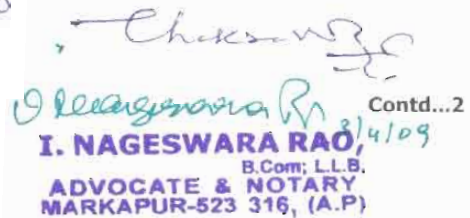 Contd...2
3/4/09
I. NAGESWARA RAO,
B.Com; L.L.B.
ADVOCATE & NOTARY
MARKAPUR-523 316, (A.P)